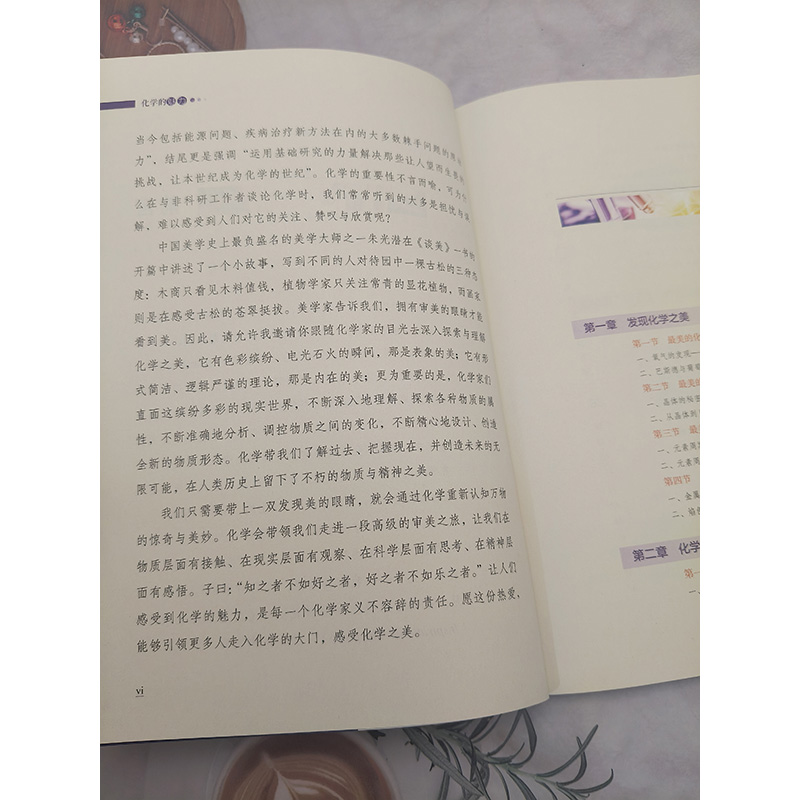 化学的魅力
当今包括能源问题、疾病治疗新方法在内的大多数棘手问题的
力”，结尾更是强调“运用基础研究的力量解决那些让人望而生畏的
挑战，让本世纪成为化学的世纪”。化学的重要性不言而喻，可为什
么在与非科研工作者谈论化学时，我们常常听到的大多是担忧与误
解，难以感受到人们对它的关注、赞叹与欣赏呢？
中国美学史上最负盛名的美学大师之一朱光潜在《谈美》一书的
开篇中讲述了一个小故事，写到不同的人对待园中一棵古松的三种态
度：木商只看见木料值钱，植物学家只关注常青的显花植物，而画家
则是在感受古松的苍翠挺拔。美学家告诉我们，拥有审美的眼睛才能
看到美。因此，请允许我邀请你跟随化学家的目光去深入探索与理解
化学之美，它有色彩缤纷、电光石火的瞬间，那是表象的美；它有形
式简洁、逻辑严谨的理论，那是内在的美；更为重要的是，化学家们
直面这缤纷多彩的现实世界，不断深入地理解、探索各种物质的属
性，不断准确地分析、调控物质之间的变化，不断精心地设计、创造
全新的物质形态。化学带我们了解过去、把握现在，并创造未来的无
限可能，在人类历史上留下了不朽的物质与精神之美。
我们只需要带上一双发现美的眼睛，就会通过化学重新认知万物
的惊奇与美妙。化学会带领我们走进一段高级的审美之旅，让我们在
物质层面有接触、在现实层面有观察、在科学层面有思考、在精神层
面有感悟。子曰：“知之者不如好之者，好之者不如乐之者。”让人们
感受到化学的魅力，是每一个化学家义不容辞的责任。愿这份热爱，
能够引领更多人走入化学的大门，感受化学之美。
vi
第一章 发现化学之美
第一节 最美的化
一、氧气的发现一
二、巴斯德与葡萄
第二节 最美的
一、晶体的秘密
二、从晶体到
第三节
一、元素周
二、元素周
第四节
一、金属
二、铂
第二章 化学
第一
一、